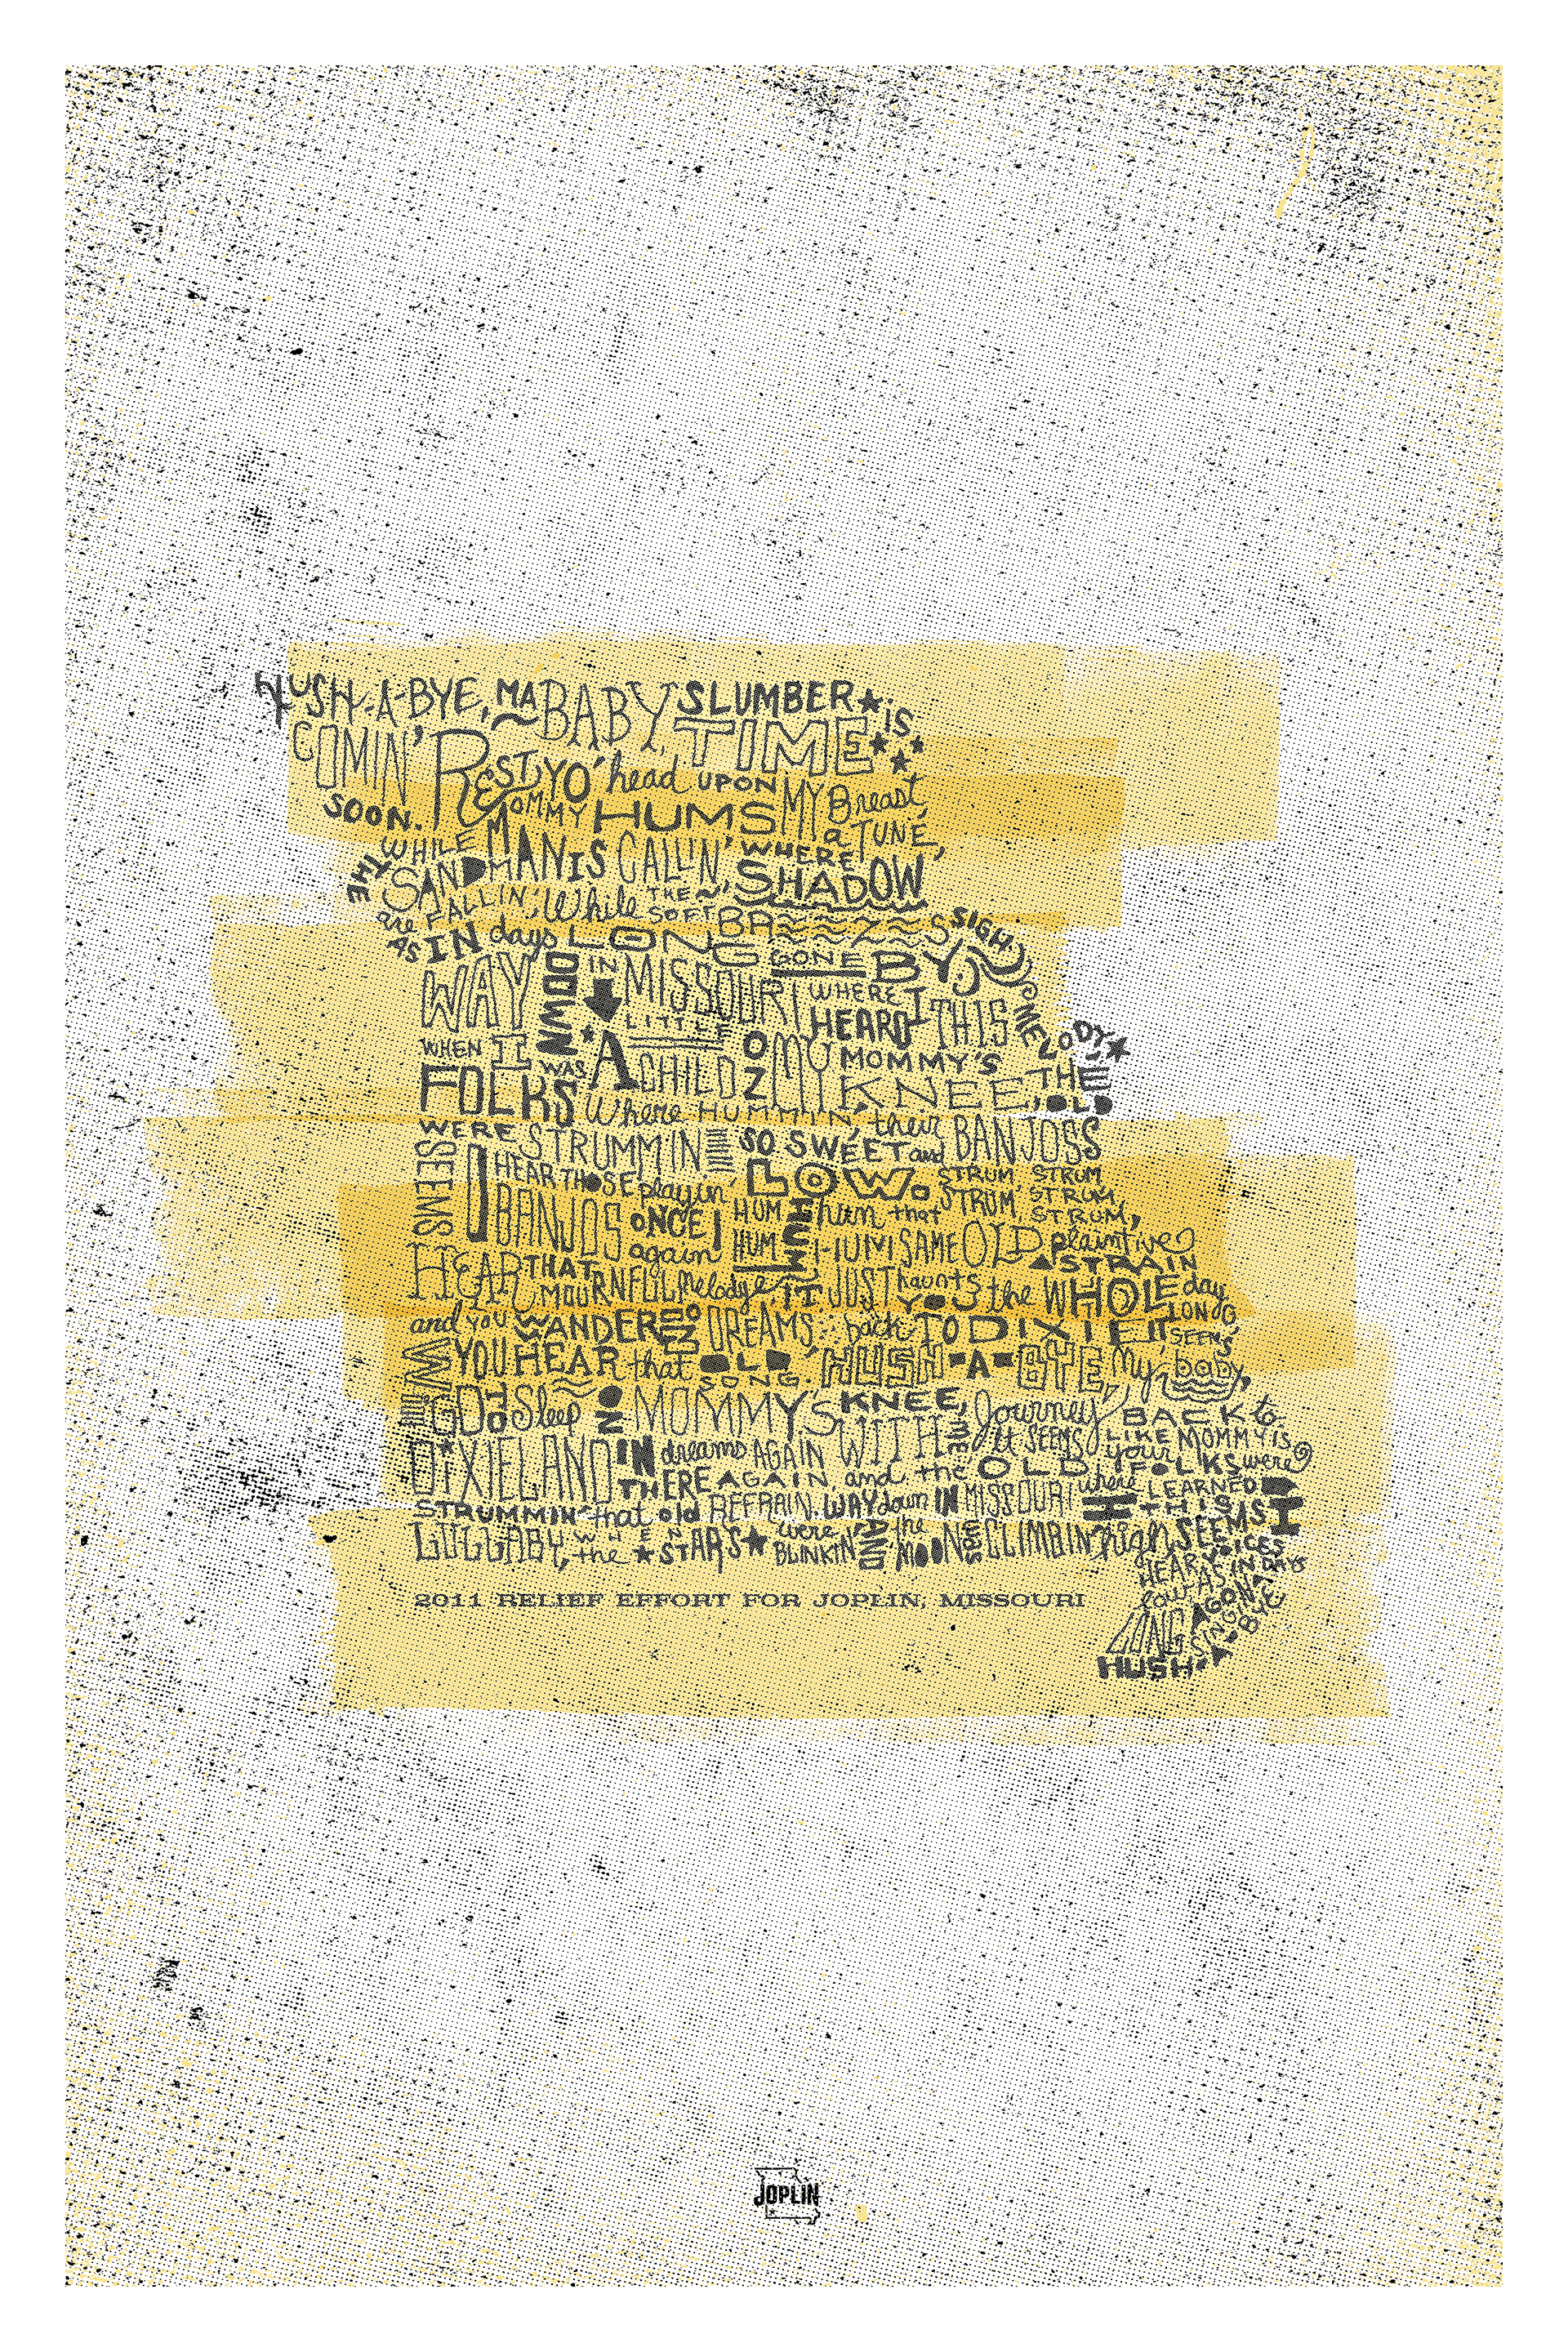 HUSH-A-BYE, MA BABY, SLUMBER TIME is
COMIN' SOON. REST YO' head UPON MY Breast,
WHILE MOMMY HUMS a TUNE,
THE SANDMAN IS CALLIN' WHERE SHADOWS
are FALLIN', While THE SOFT BREEZES SIGH
AS IN days LONG GONE BY,
WAY DOWN IN MISSOURI WHERE I HEARD THIS MELODY
WHEN I WAS A LITTLE CHILD ON MY MOMMY'S KNEE, THE OLD
FOLKS Where HUMMIN', their BANJOSS
WERE STRUMMIN SO SWEET and LOW.
STRUM, STRUM, STRUM, STRUM, STRUM,
SEEMS I HEAR THOSE BANJOS playin' ONCE again,
HUM HUM HUM HUM that SAME OLD plaintive STRAIN
HEAR THAT MOURNFUL Melody IT JUST haunts YOU the WHOLE day LONG
and YOU WANDER IN DREAMS back TO DIXIE IT SEEMS
WHEN YOU HEAR that OLD SONG. HUSH-A-BYE My baby,
GO TO Sleep ON MOMMY'S KNEE, Journey BACK to
DIXIELAND IN dreams AGAIN WITH ME, it SEEMS LIKE your MOMMY IS
THERE AGAIN and the OLD FOLKS were
STRUMMIN that old REFRAIN. WAY down IN MISSOURI where I LEARNED THIS
LULLABY, WHEN the STARS were BLINKIN AND the MOON WAS CLIMBIN high SEEMS I
HEAR VOICES low AS IN DAYS
LONG AGO
SINGIN
HUSH-A-BYE
2011 RELIEF EFFORT FOR JOPLIN, MISSOURI
JOPLIN